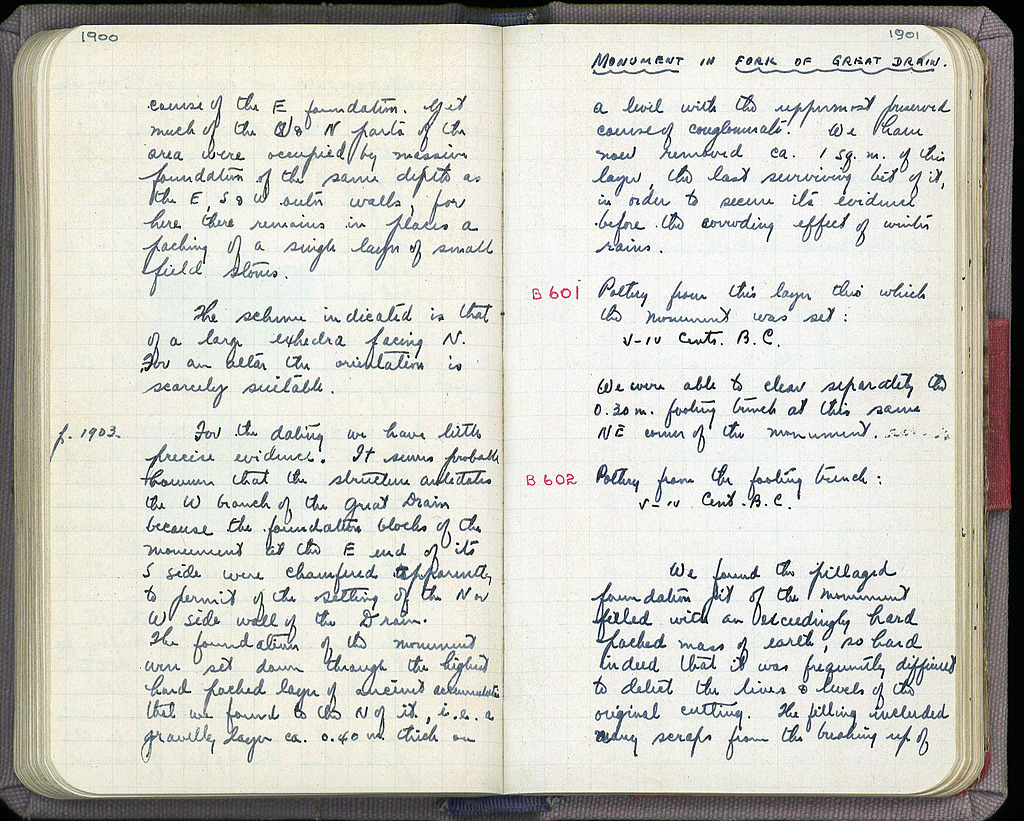 1900
course of the E foundation. Yet
much of the W & N parts of the
area were occupied by massive
foundation of the same depth as
the E, S & W outer walls, for
here there remains in places a
packing of a single layer of small
field stones.
The scheme indicated is that
of a large exhedra facing N.
For an altar the orientation is
scarcely suitable.
f. 1903.
For the dating we have little
precise evidence. It seems probable
however that the structure antedates
the W branch of the Great Drain
because the foundation blocks of the
monument at the E end of its
S side were chamfered apparently
to permit of the setting of the N or
W side wall of the Drain.
The foundations of the monument
were set down through the highest
hard packed layer of ancient accumulation
that we found to the N of it, i.e. a
gravelly layer ca. 0.40 m. thick on
1901
MONUMENT IN FORK OF GREAT DRAIN.
a level with the uppermost preserved
course of conglomerate. We have
now removed ca. 1 sq. m. of this
layer, the last surviving bit of it,
in order to secure its evidence
before the corroding effect of winter
rains.
B 601 Pottery from this layer thro which
the monument was set:
V-IV Cents. B.C.
We were able to clear separately the
0.30 m. footing trench at this same
NE corner of the monument.
B 602 Pottery from the footing trench:
V-IV Cent. B.C.
We found the pillaged
foundation pit of the monument
filled with an exceedingly hard
packed mass of earth, so hard
indeed that it was frequently difficult
to detect the lines & levels of the
original cutting. The filling included
many scraps from the breaking up of